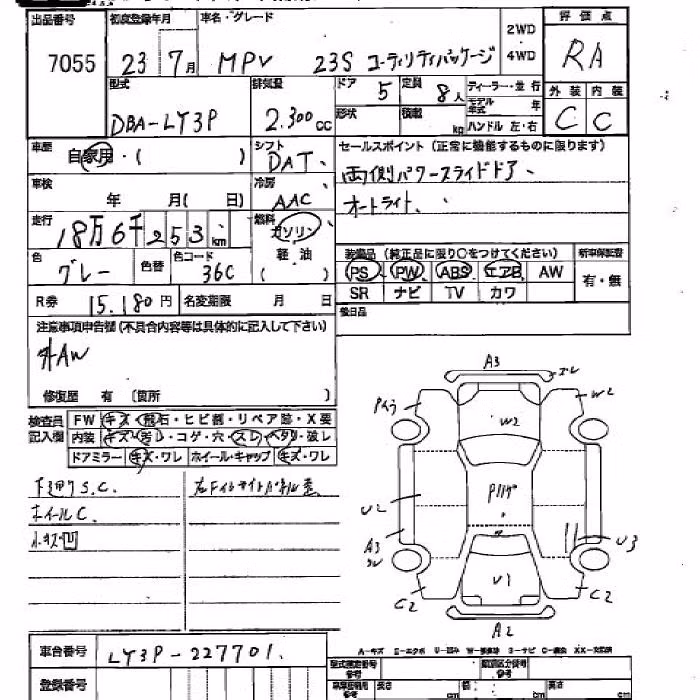 出品番号 初度登録年月 車名・グレード 2WD 4WD 評価点
7055 23 7月 MPV 23S コーディリティパッケージ RA
型式 排気量 ドア 5 定員 8人 ディーラー・並行 外装 内装
DBA-LY3P 2.300cc 形状 積載 kg モデル年式 年 ハンドル 左・右 C C
車歴 自家用・( ) シフト DAT セールスポイント (正常に機能するものに限ります)
両側パワースライドドア
車検 年 月( 日) 冷房 AAC オートライト
走行 18万6千253km 燃料 ガソリン 軽油 ( )
色 グレー 色替 色コード 36C
装備品 (純正品に限り○をつけてください) 新車保証書
PS PW ABS エアB AW 有・無
SR ナビ TV カワ
R券 15.180円 名変期限 月 日
後日品
注意事項申告欄(不具合内容等は具体的に記入して下さい)
社AW
修復歴 有 (箇所 )
検査員記入欄 FW キズ・飛石・ヒビ割・リペア跡・X要
内装 キズ・汚レ・コゲ・穴・スレ・ヘタリ・破レ
ドアミラー キズ・ワレ ホイール・キャップ キズ・ワレ
ドミラーS.C. 右Fインサイドパネル歪
ホイールC.
小キズ凹
A3 ズレ
W2
W2
Pルーフ
U2
A3
U3
U1
C2 C2
A2
車台番号 LY3P-227701
登録番号
A-キズ E-エクボ U-凹み W-補修跡 S-サビ C-腐食 XX-交換済
型式指定番号 参考 類別区分番号 参考
長さ cm 幅 cm 高さ cm